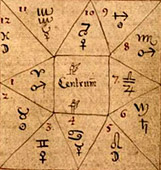 11 10 9
12 8
1 Centrum 7
2
3 4 5 6